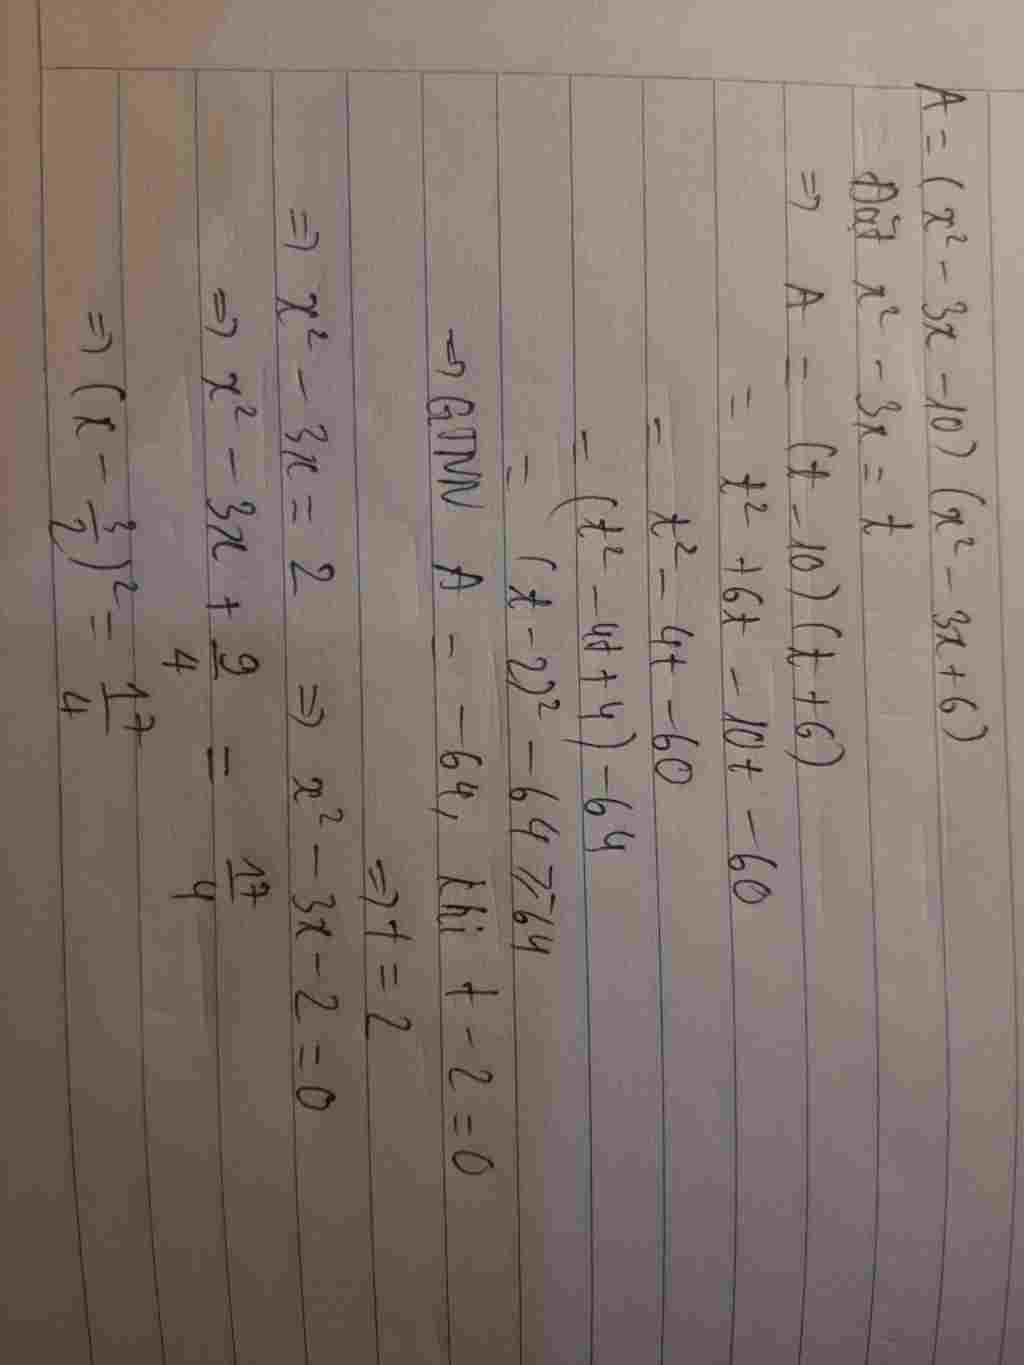 A = (x² - 3x - 10) (x² - 3x + 6)
Đặt x² - 3x = t
=> A = (t - 10) (t + 6)
= t² + 6t - 10t - 60
= t² - 4t - 60
= (t² - 4t + 4) - 64
= (t - 2)² - 64 ≥ -64
=> GTNN A = -64, khi t - 2 = 0
=> t = 2
=> x² - 3x = 2 => x² - 3x - 2 = 0
=> x² - 3x + 9/4 = 17/4
=> (x - 3/2)² = 17/4